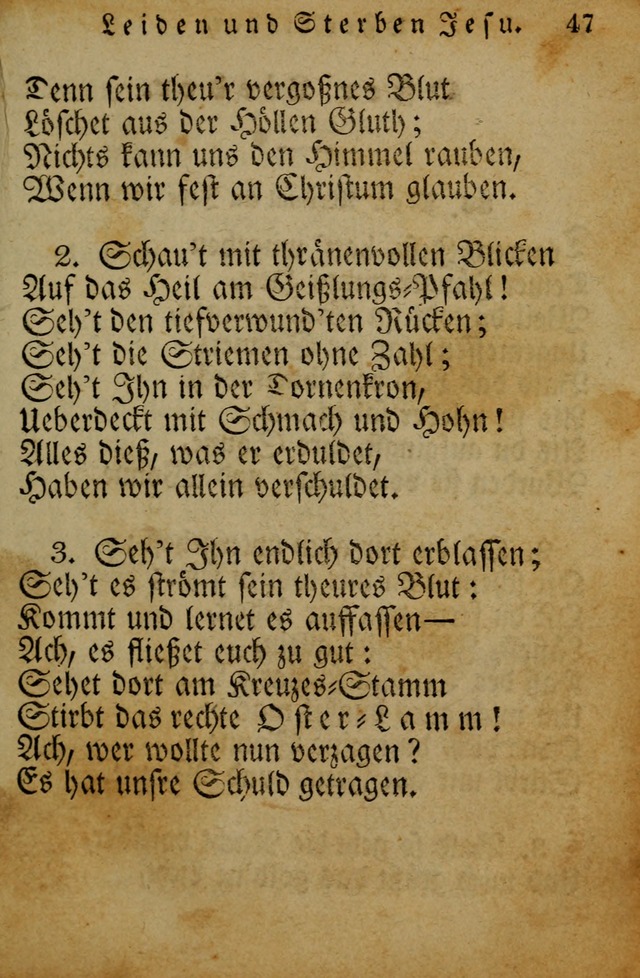 Leiden und Sterben Jesu. 47
Denn sein theu'r vergoßnes Blut
Löschet aus der Höllen Gluth;
Nichts kann uns den Himmel rauben,
Wenn wir fest an Christum glauben.
2. Schau't mit thränenvollen Blicken
Auf das Heil am Geißlungs-Pfahl!
Seh't den tiefverwund'ten Rücken;
Seh't die Striemen ohne Zahl;
Seh't Ihn in der Dornenkron,
Ueberdeckt mit Schmach und Hohn!
Alles dieß, was er erduldet,
Haben wir allein verschuldet.
3. Seh't Ihn endlich dort erblassen;
Seh't es strömt sein theures Blut:
Kommt und lernet es auffassen—
Ach, es fließet euch zu gut:
Sehet dort am Kreuzes-Stamm
Stirbt das rechte Oster-Lamm!
Ach, wer wollte nun verzagen?
Es hat unsre Schuld getragen.